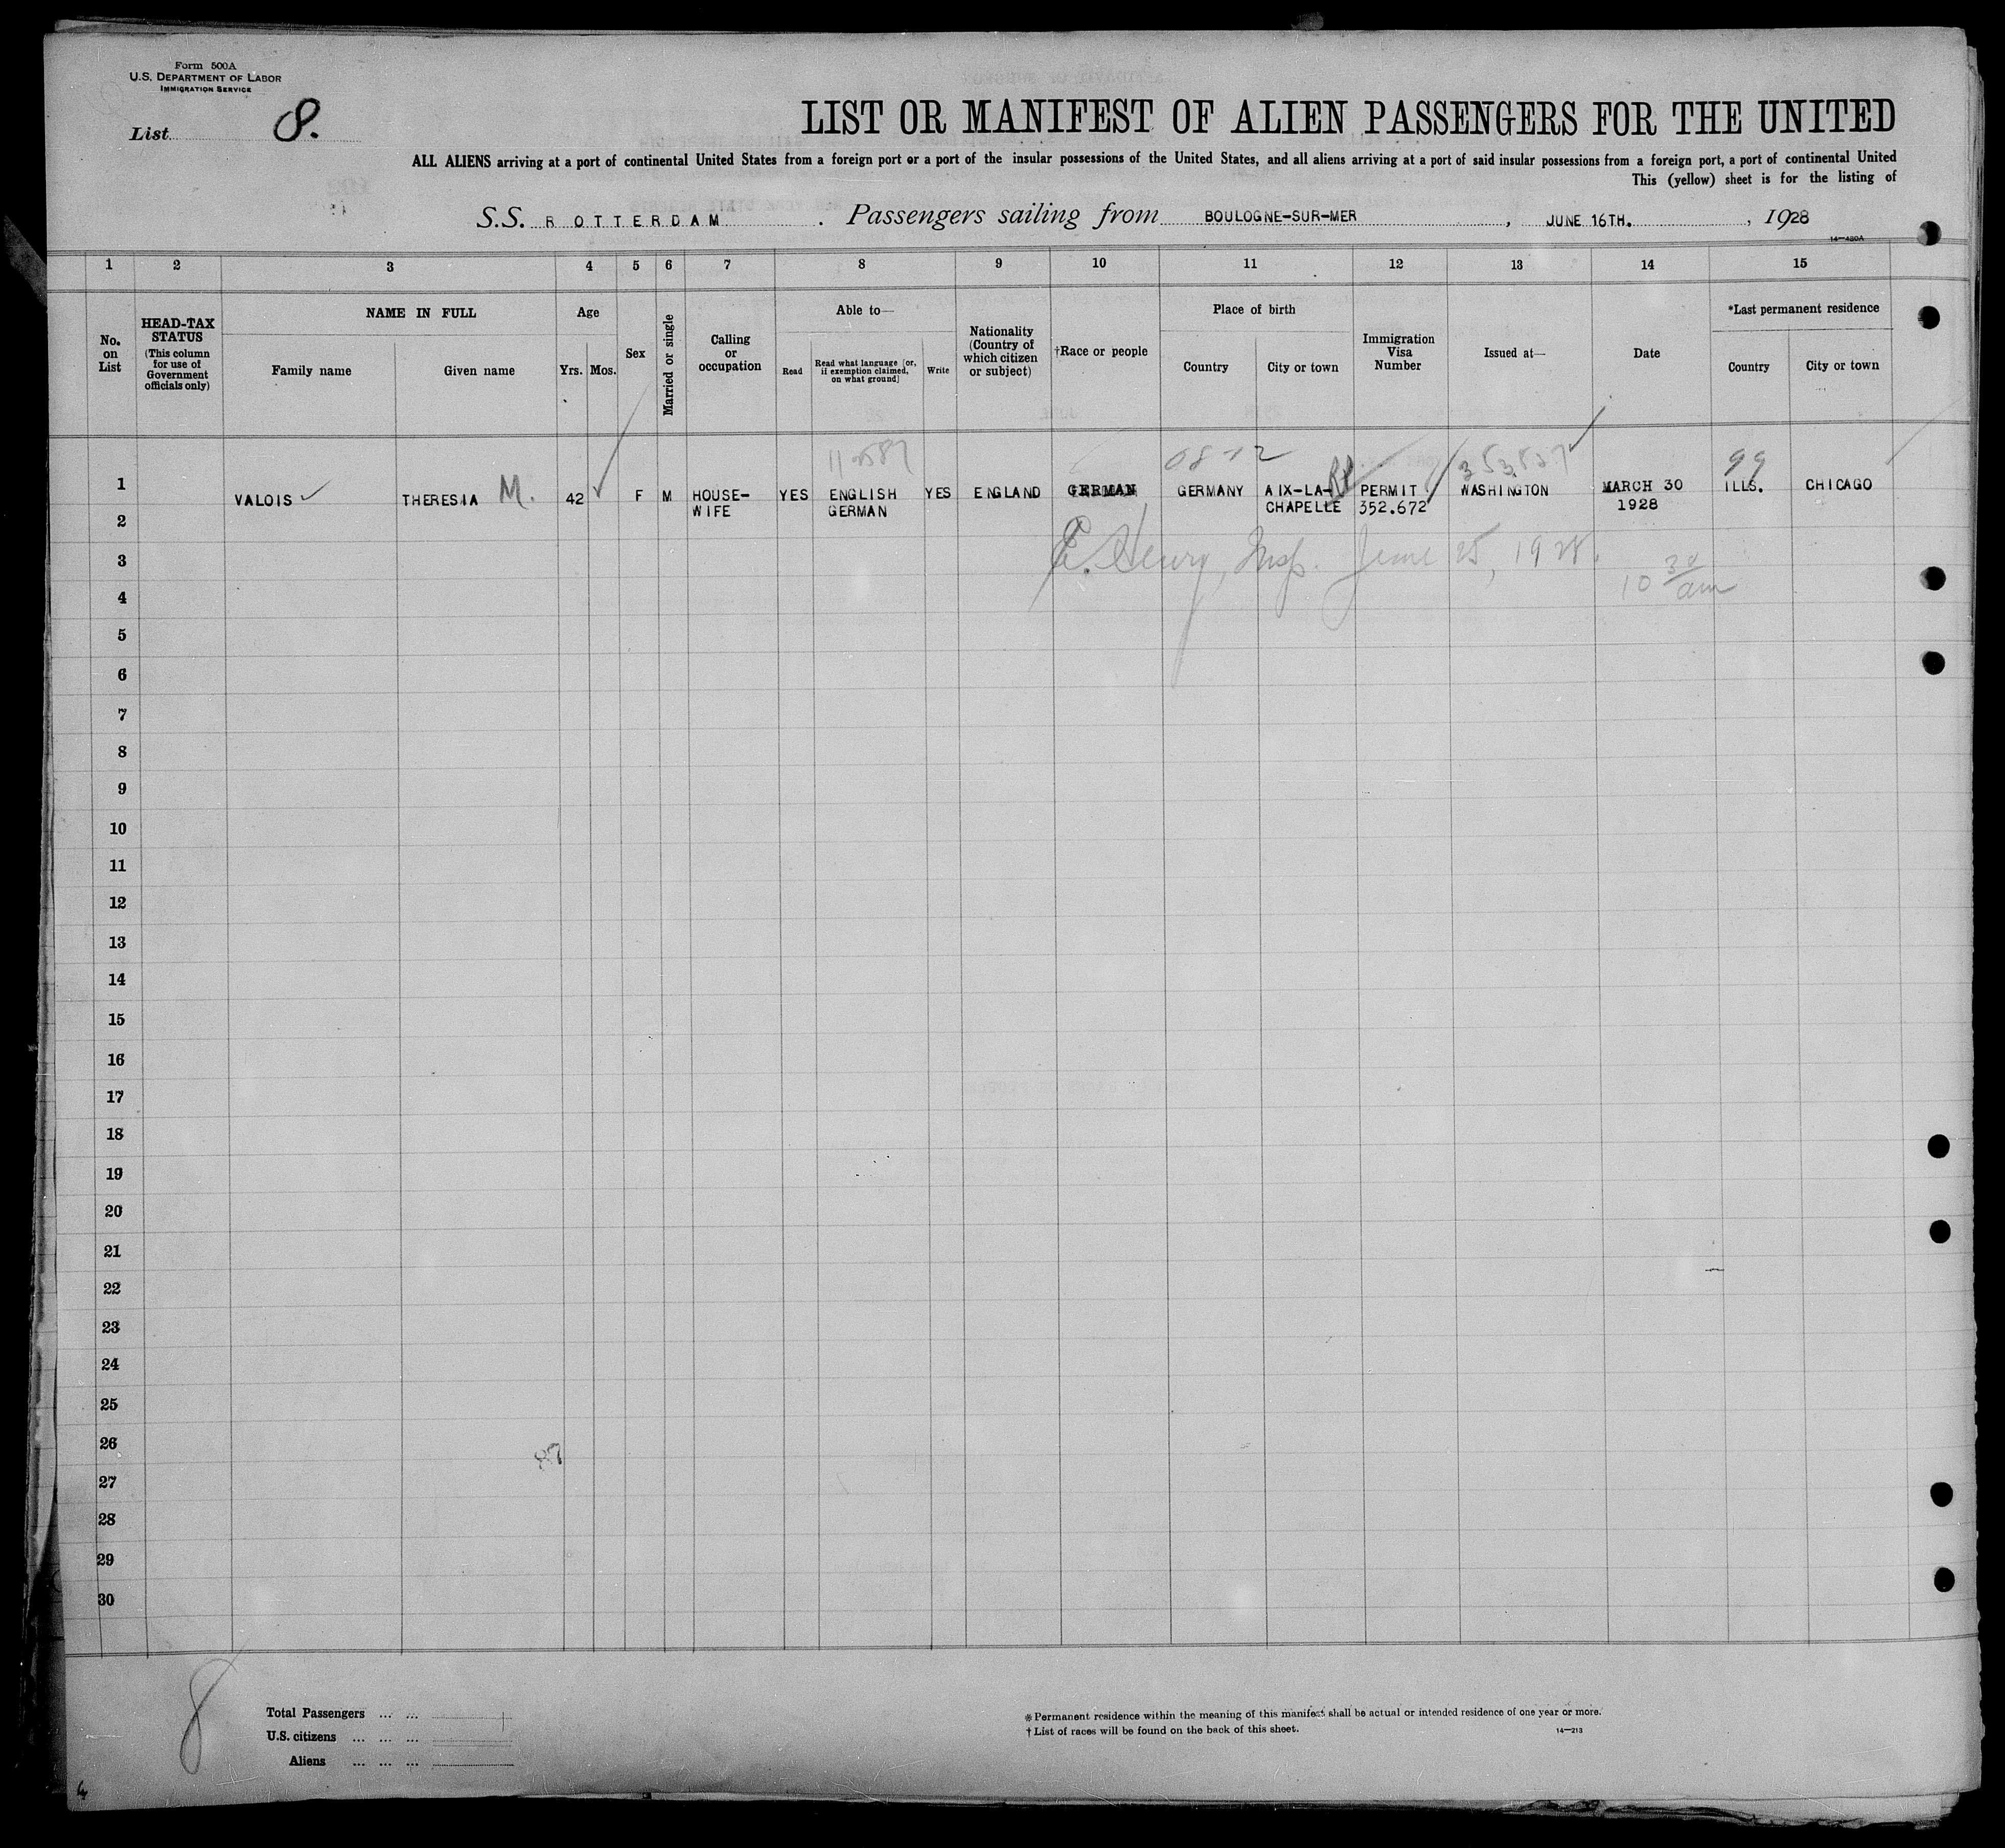 Form 500A
U.S. DEPARTMENT OF LABOR
IMMIGRATION SERVICE
List 8.
LIST OR MANIFEST OF ALIEN PASSENGERS FOR THE UNITED
ALL ALIENS arriving at a port of continental United States from a foreign port or a port of the insular possessions of the United States, and all aliens arriving at a port of said insular possessions from a foreign port, a port of continental United
This (yellow) sheet is for the listing of
S.S. ROTTERDAM. Passengers sailing from BOULOGNE-SUR-MER, JUNE 16TH., 1928
14-480A
1 2 3 4 5 6 7 8 9 10 11 12 13 14 15
No. on List
HEAD-TAX STATUS
(This column for use of Government officials only)
NAME IN FULL
Family name
Given name
Age
Yrs. Mos.
Sex
Married or single
Calling or occupation
Able to—
Read
Read what language [or, if exemption claimed, on what ground]
Write
Nationality (Country of which citizen or subject)
†Race or people
Place of birth
Country
City or town
Immigration Visa Number
Issued at—
Date
*Last permanent residence
Country
City or town
99
1 VALOIS THERESIA M. 42 F M HOUSE- YES ENGLISH YES ENGLAND GERMAN GERMANY AIX-LA- PERMIT WASHINGTON MARCH 30 ILLS. CHICAGO
WIFE GERMAN CHAPELLE 352.672 1928
2
3 E. Henry, Insp. June 25, 1928. 10 30 am
4
5
6
7
8
9
10
11
12
13
14
15
16
17
18
19
20
21
22
23
24
25
26
27
28
29
30
8
Total Passengers ... ... 1
U.S. citizens ... ... ...
Aliens ... ... ...
* Permanent residence within the meaning of this manifest shall be actual or intended residence of one year or more.
† List of races will be found on the back of this sheet.
14—213